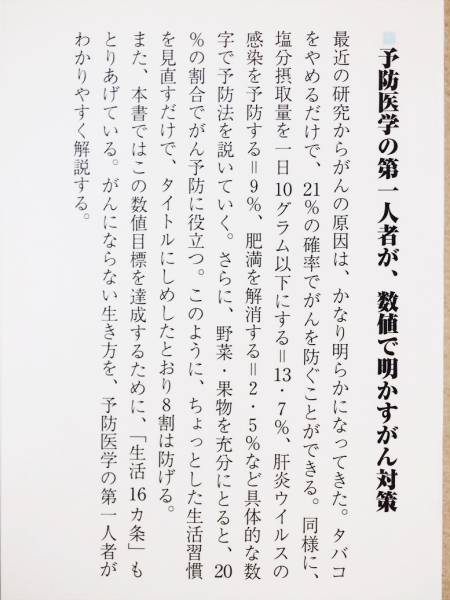 ■予防医学の第一人者が、数値で明かすがん対策
最近の研究からがんの原因は、かなり明らかになってきた。タバコ
をやめるだけで、21%の確率でがんを防ぐことができる。同様に、
塩分摂取量を一日10グラム以下にする＝13・7%、肝炎ウイルスの
感染を予防する＝9%、肥満を解消する＝2・5%など具体的な数
字で予防法を説いていく。さらに、野菜・果物を充分にとると、20
%の割合でがん予防に役立つ。このように、ちょっとした生活習慣
を見直すだけで、タイトルにしめしたとおり8割は防げる。
また、本書ではこの数値目標を達成するために、「生活16カ条」も
とりあげている。がんにならない生き方を、予防医学の第一人者が
わかりやすく解説する。